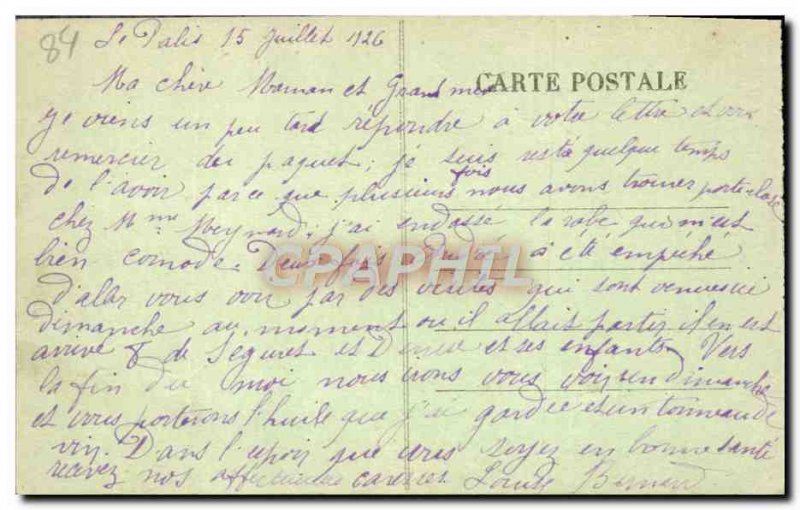 84
Le Palis 15 Juillet 1926
Ma chère Maman et Grand mère
CARTE POSTALE
Je viens un peu tard répondre à votre lettre et vous
remercier du paquet; je suis resté quelque temps
de l'avoir parce que plusieurs fois nous avons trouver porte close
chez Mme Meynard, j'ai endossé la robe qui m'est
bien comode. Deux fois à été empêché
d'aler vous voir par des visites qui sont venues ici
dimanche au moment ou il allait partir il en est
arrivé 8 de Segures et et ses enfants. Vers
la fin du moi nous irons vous voir un dimanche
et vous porterons l'huile que j'ai gardée et un tonneau de
vin. Dans l'espoir que vous soyez en bonne santé
recevez nos affectueuses caresses Louise
CPAPHIL